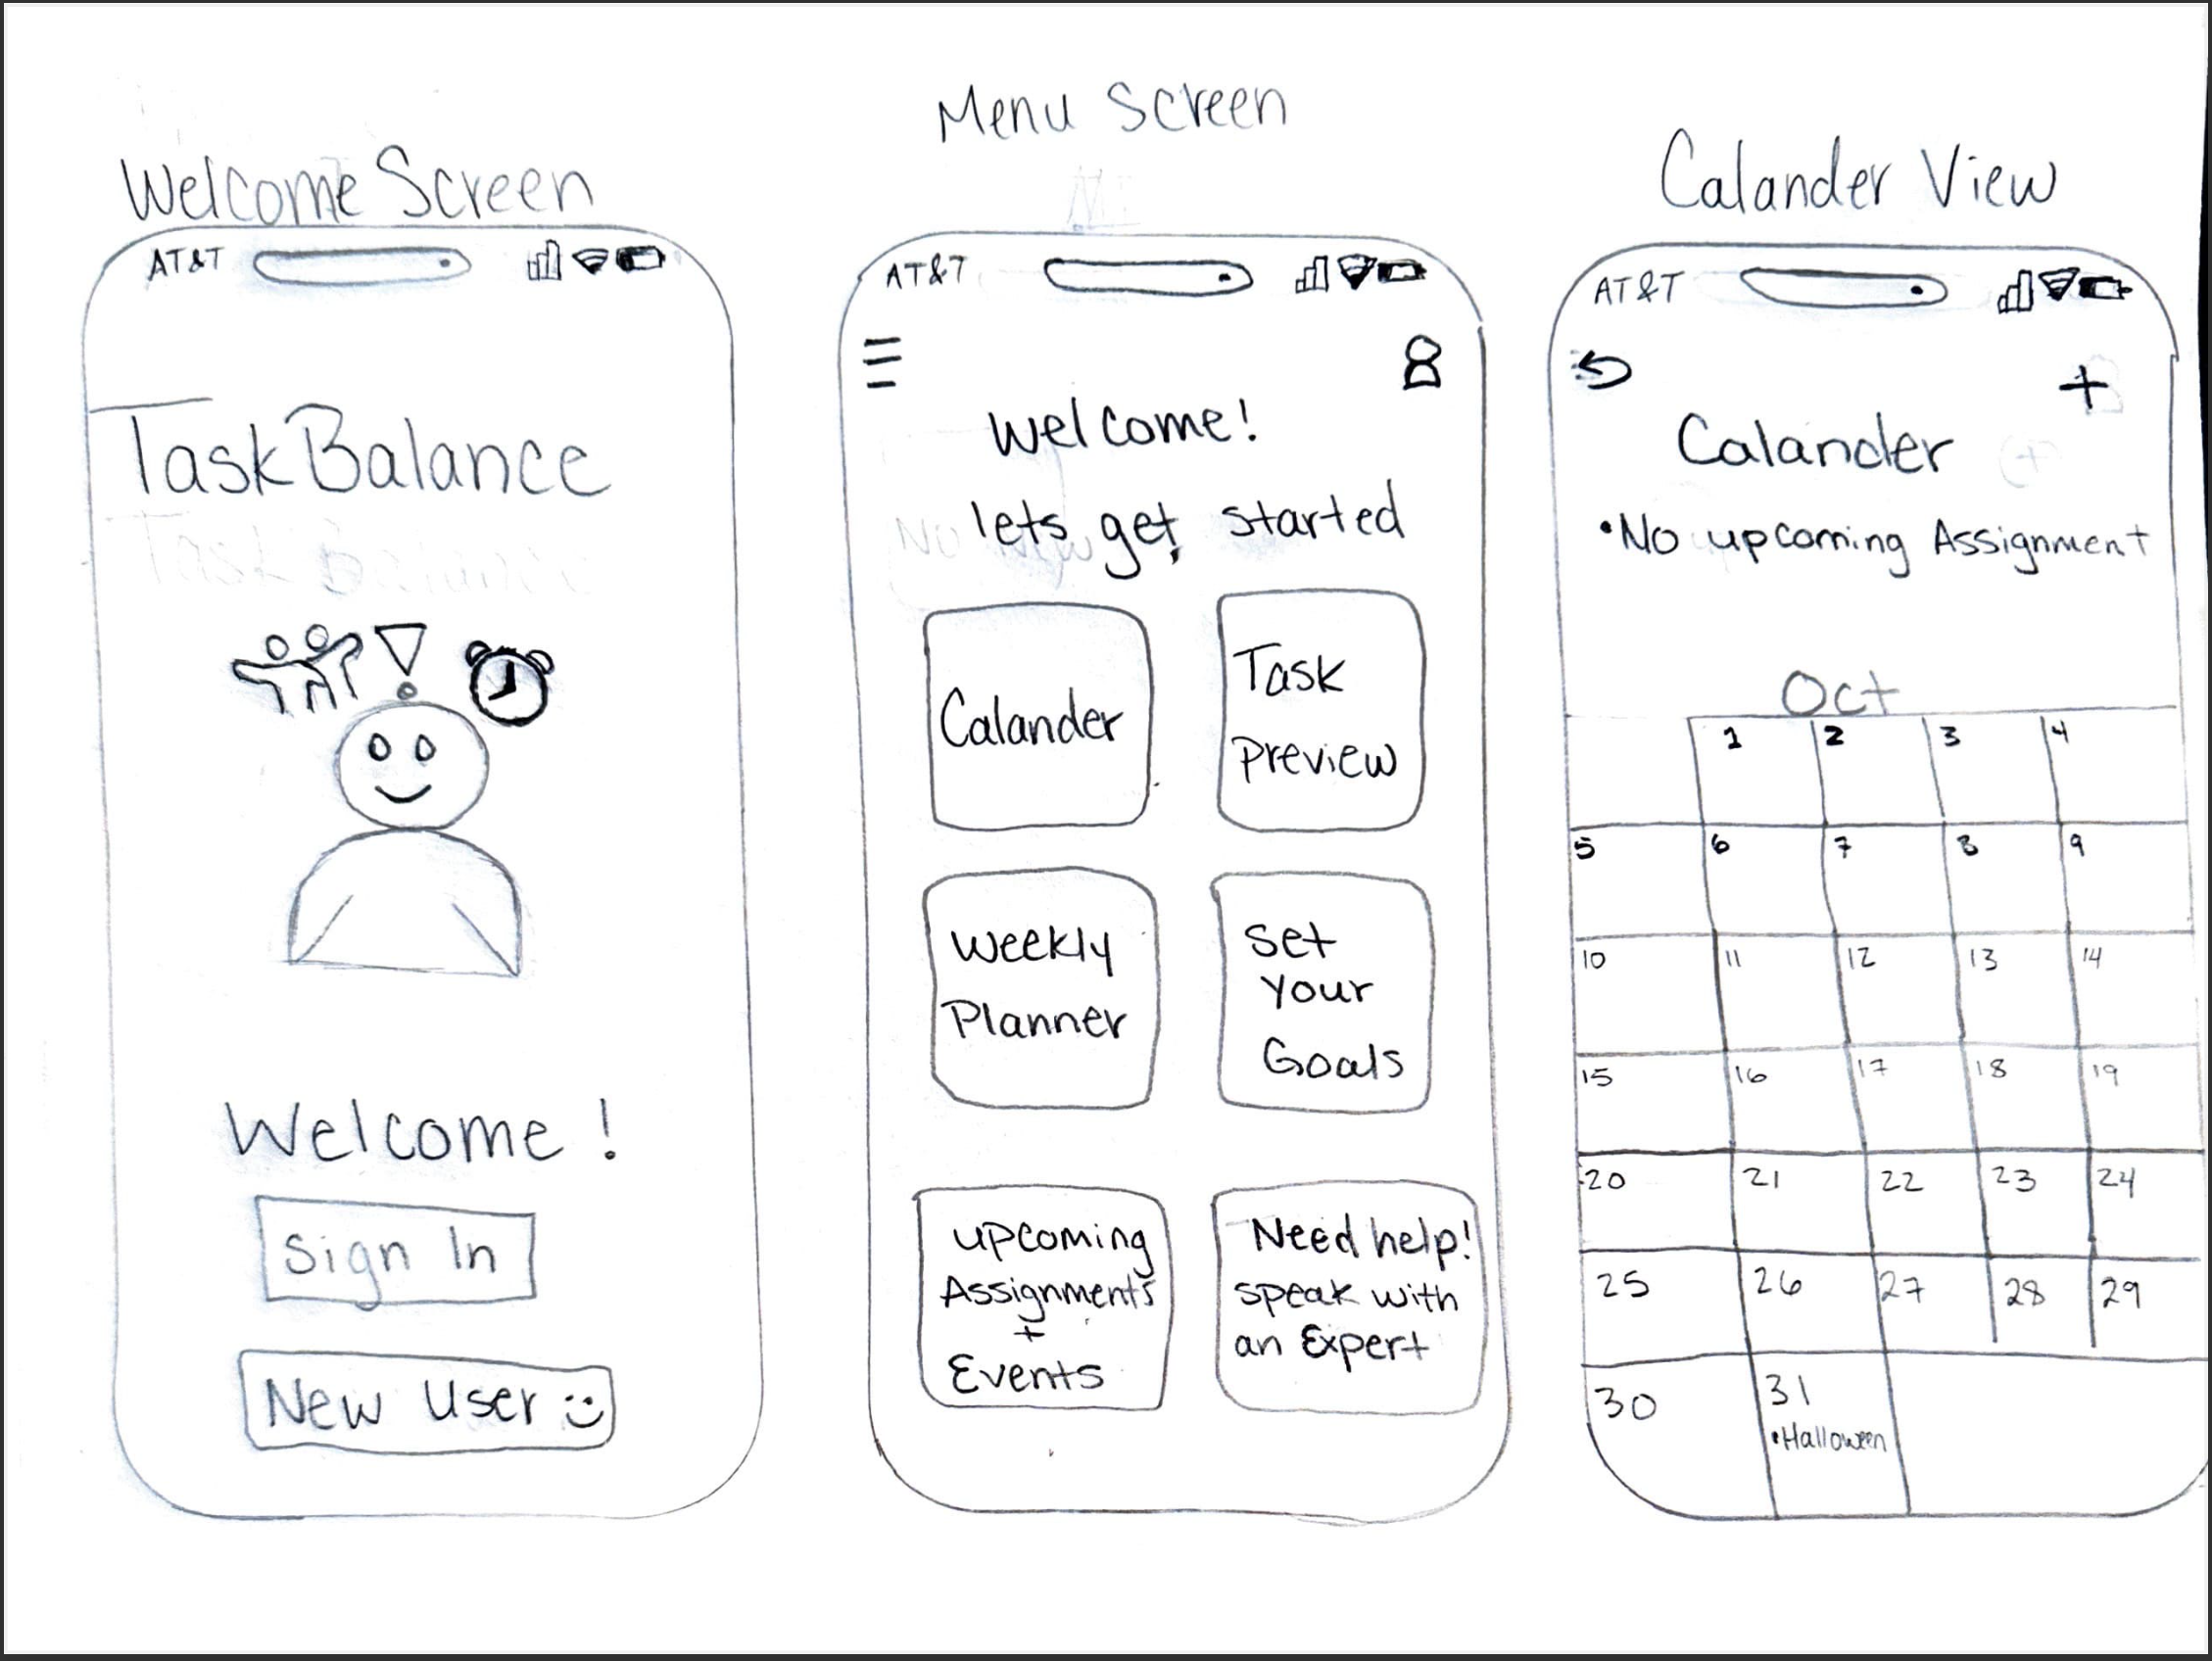 Welcome Screen
AT&T
Task Balance
Task Balance
Welcome!
Sign In
New User :)
Menu Screen
AT&T
Welcome!
lets get started
Calander
Task
Preview
Weekly
Planner
Set
Your
Goals
Upcoming
Assignments
+
Events
Need help!
speak with
an Expert
Calander View
AT&T
+
Calander
•No upcoming Assignment
Oct
1 2 3 4
5 6 7 8 9
10 11 12 13 14
15 16 17 18 19
20 21 22 23 24
25 26 27 28 29
30 31
•Halloween